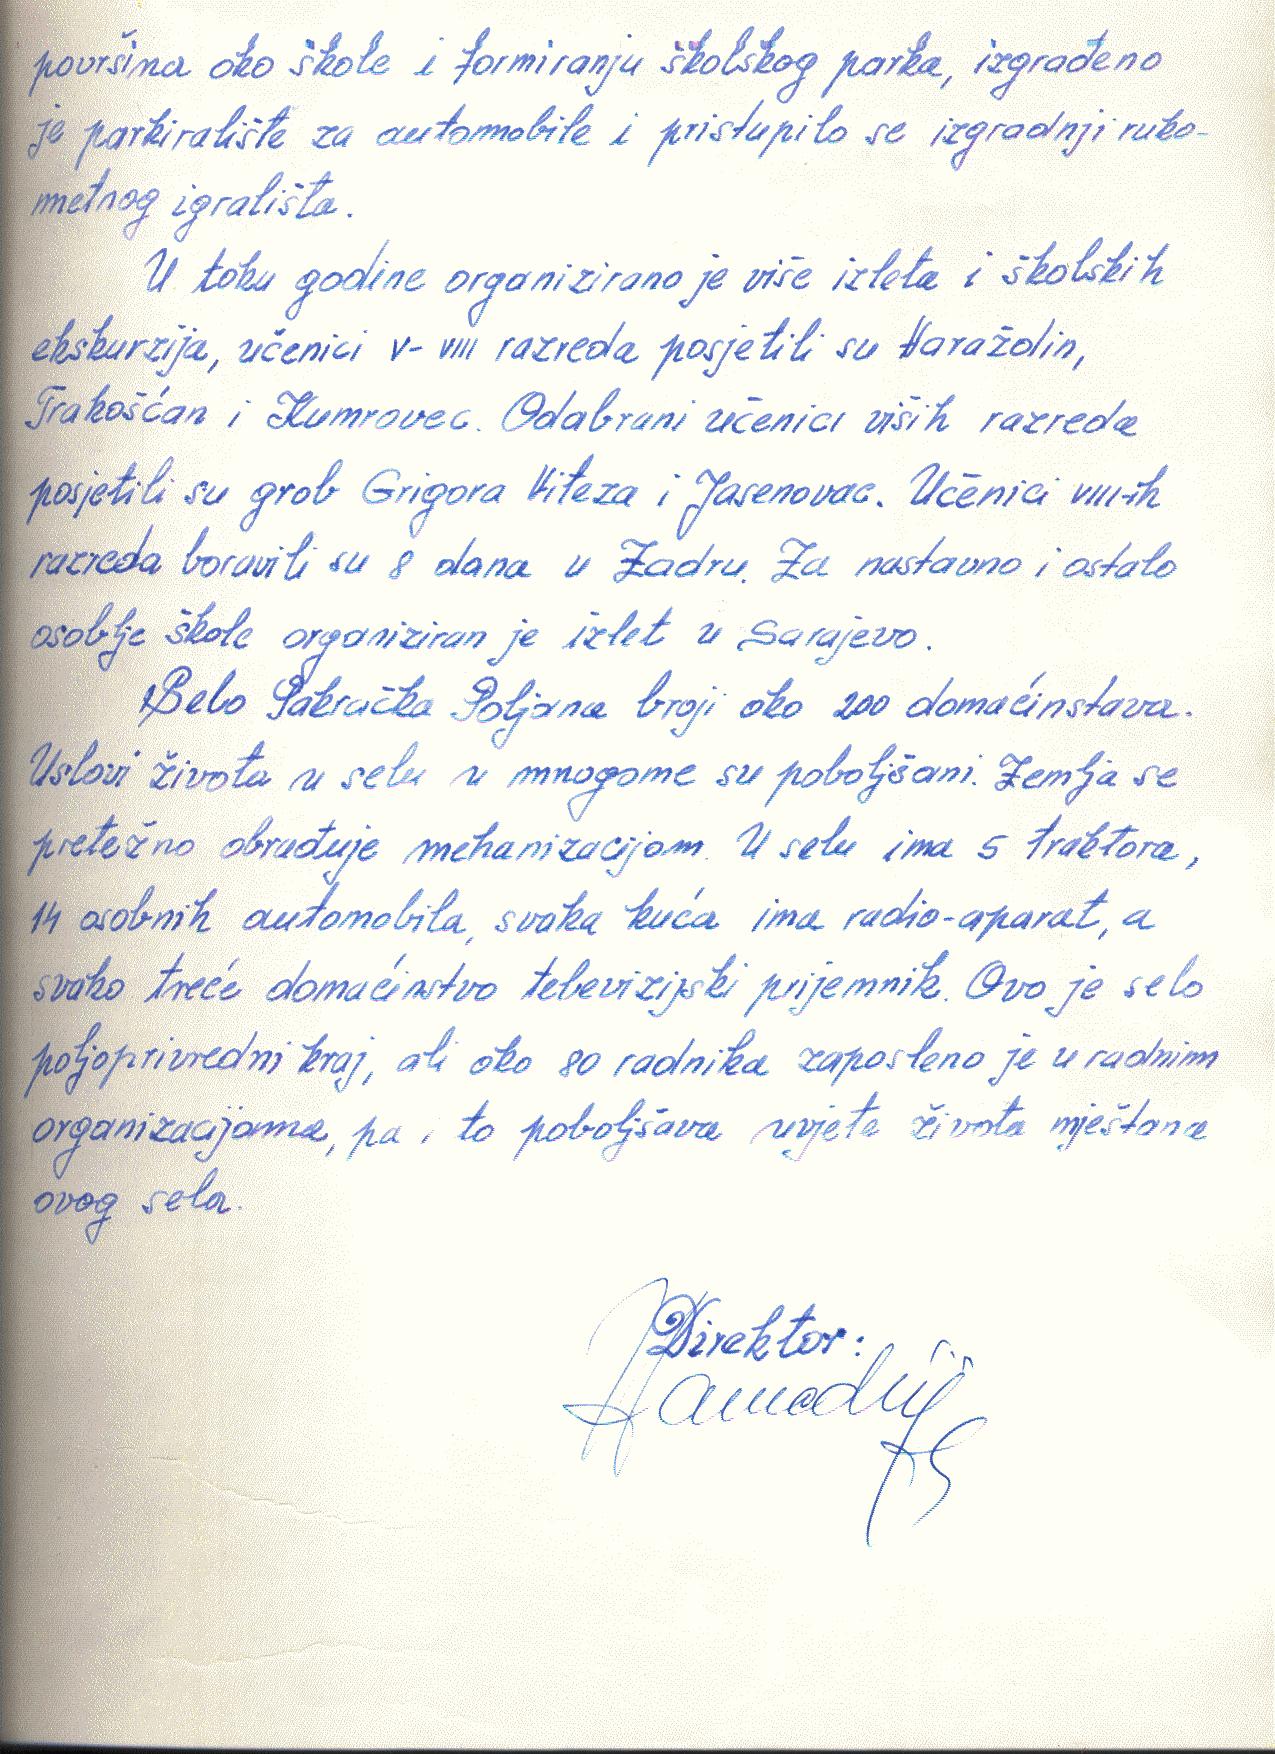 površina oko škole i formiranju školskog parka, izgrađeno
je parkiralište za automobile i pristupilo se izgradnji ruko-
metnog igrališta.
U toku godine organizirano je više izleta i školskih
ekskurzija, učenici V- VIII razreda posjetili su Varaždin,
Trakošćan i Kumrovec. Odabrani učenici viših razreda
posjetili su grob Grigora Viteza i Jasenovac. Učenici VIII-ih
razreda boravili su 8 dana u Zadru. Za nastavno i ostalo
osoblje škole organiziran je izlet u Sarajevo.
Selo Pakračka Poljana broji oko 200 domaćinstava.
Uslovi života u selu u mnogome su poboljšani. Zemlja se
pretežno obrađuje mehanizacijom. U selu ima 5 traktora,
14 osobnih automobila, svaka kuća ima radio-aparat, a
svako treće domaćinstvo televizijski prijemnik. Ovo je selo
poljoprivredni kraj, ali oko 80 radnika zaposleno je u radnim
organizacijama, pa i to poboljšava uvjete života mještana
ovog sela.
Direktor: